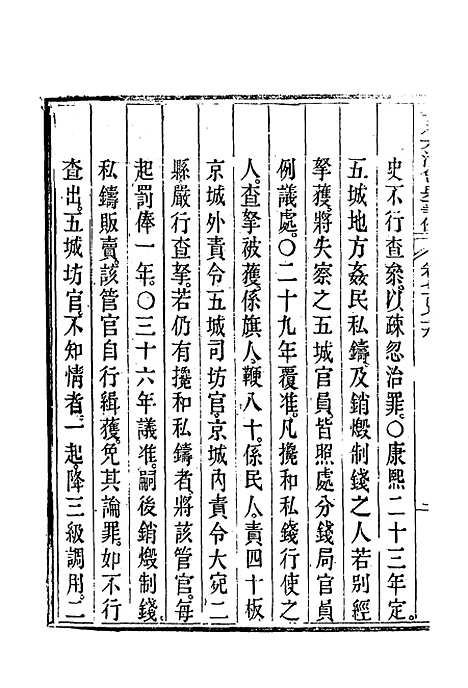 史不行查參以疎忽治罪〇康熙二十三年定
五城地方姦民私鑄及銷燬制錢之人若別經
拏獲將失察之五城官員皆照處分錢局官員
例議處〇二十九年覆准凡攙和私錢行使之
人查拏被獲係旗人鞭八十係民人責四十板
京城外責令五城司坊官京城內責令大宛二
縣嚴行查拏若仍有攙和私鑄者將該管官每
起罰俸一年〇三十六年議准嗣後銷燬制錢
私鑄販賣該管官自行緝獲免其論罪如不行
查出五城坊官不知情者一起降三級調用二